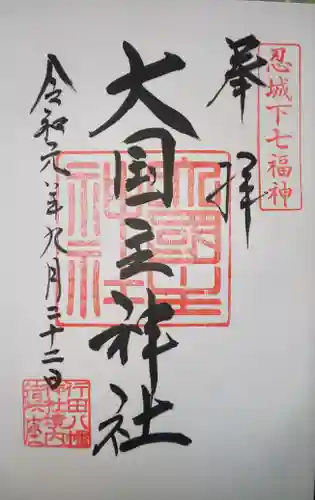 忍城下七福神
奉拝
大国主神社
令和元年九月二十二日